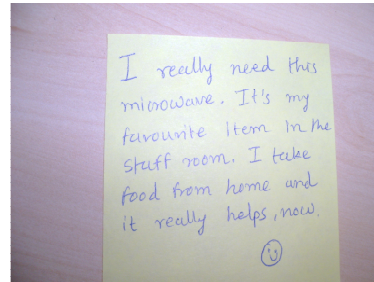 I really need this
microwave. It's my
favourite item in the
staff room. I take
food from home and
it really helps, now.